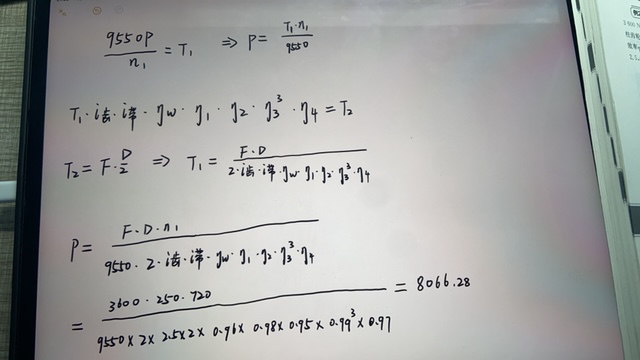 9550P/n₁ = T₁ ⇒ P = T₁·n₁/9550
T₁·i齿·i带·ηw·η₁·η₂·η₃³·η₄ = T₂
T₂ = F·D/2 ⇒ T₁ = F·D/2·i齿·i带·ηw·η₁·η₂·η₃³·η₄
P = F·D·n₁/9550·2·i齿·i带·ηw·η₁·η₂·η₃³·η₄
= 3600·250·720/9550×2×2.5×2×0.96×0.98×0.95×0.99³×0.97 = 8066.28